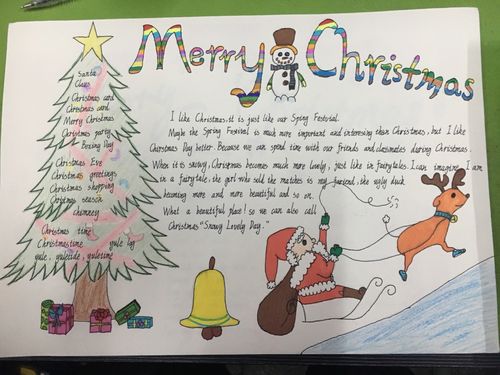 Merry Christmas
Santa
Claus
Christmas card
Christmas card
Merry Christmas
Christmas party
Boxing Day
Christmas Eve
Christmas greetings
Christmas shopping
Christmas season
chimney
Christmas time
Christmastime yule log
yule, yuletide, yuletime
I like Christmas.it is just like our Sping Festival.
Maybe the Spring Festival is much more important and interesting than Christmas, but I like
Christmas Day better. Because we can spend time with our friends and classmates during Christmas.
When it is snowy, Christmas becomes much more lovely, just like in fairytales. I can imagine I am
in a fairytale, the girl who sold the matches is my friend, the ugly duck
becoming more and more beautiful and so on.
What a beautiful place! so we can also call
Christmas "Snowy Lovely Day."